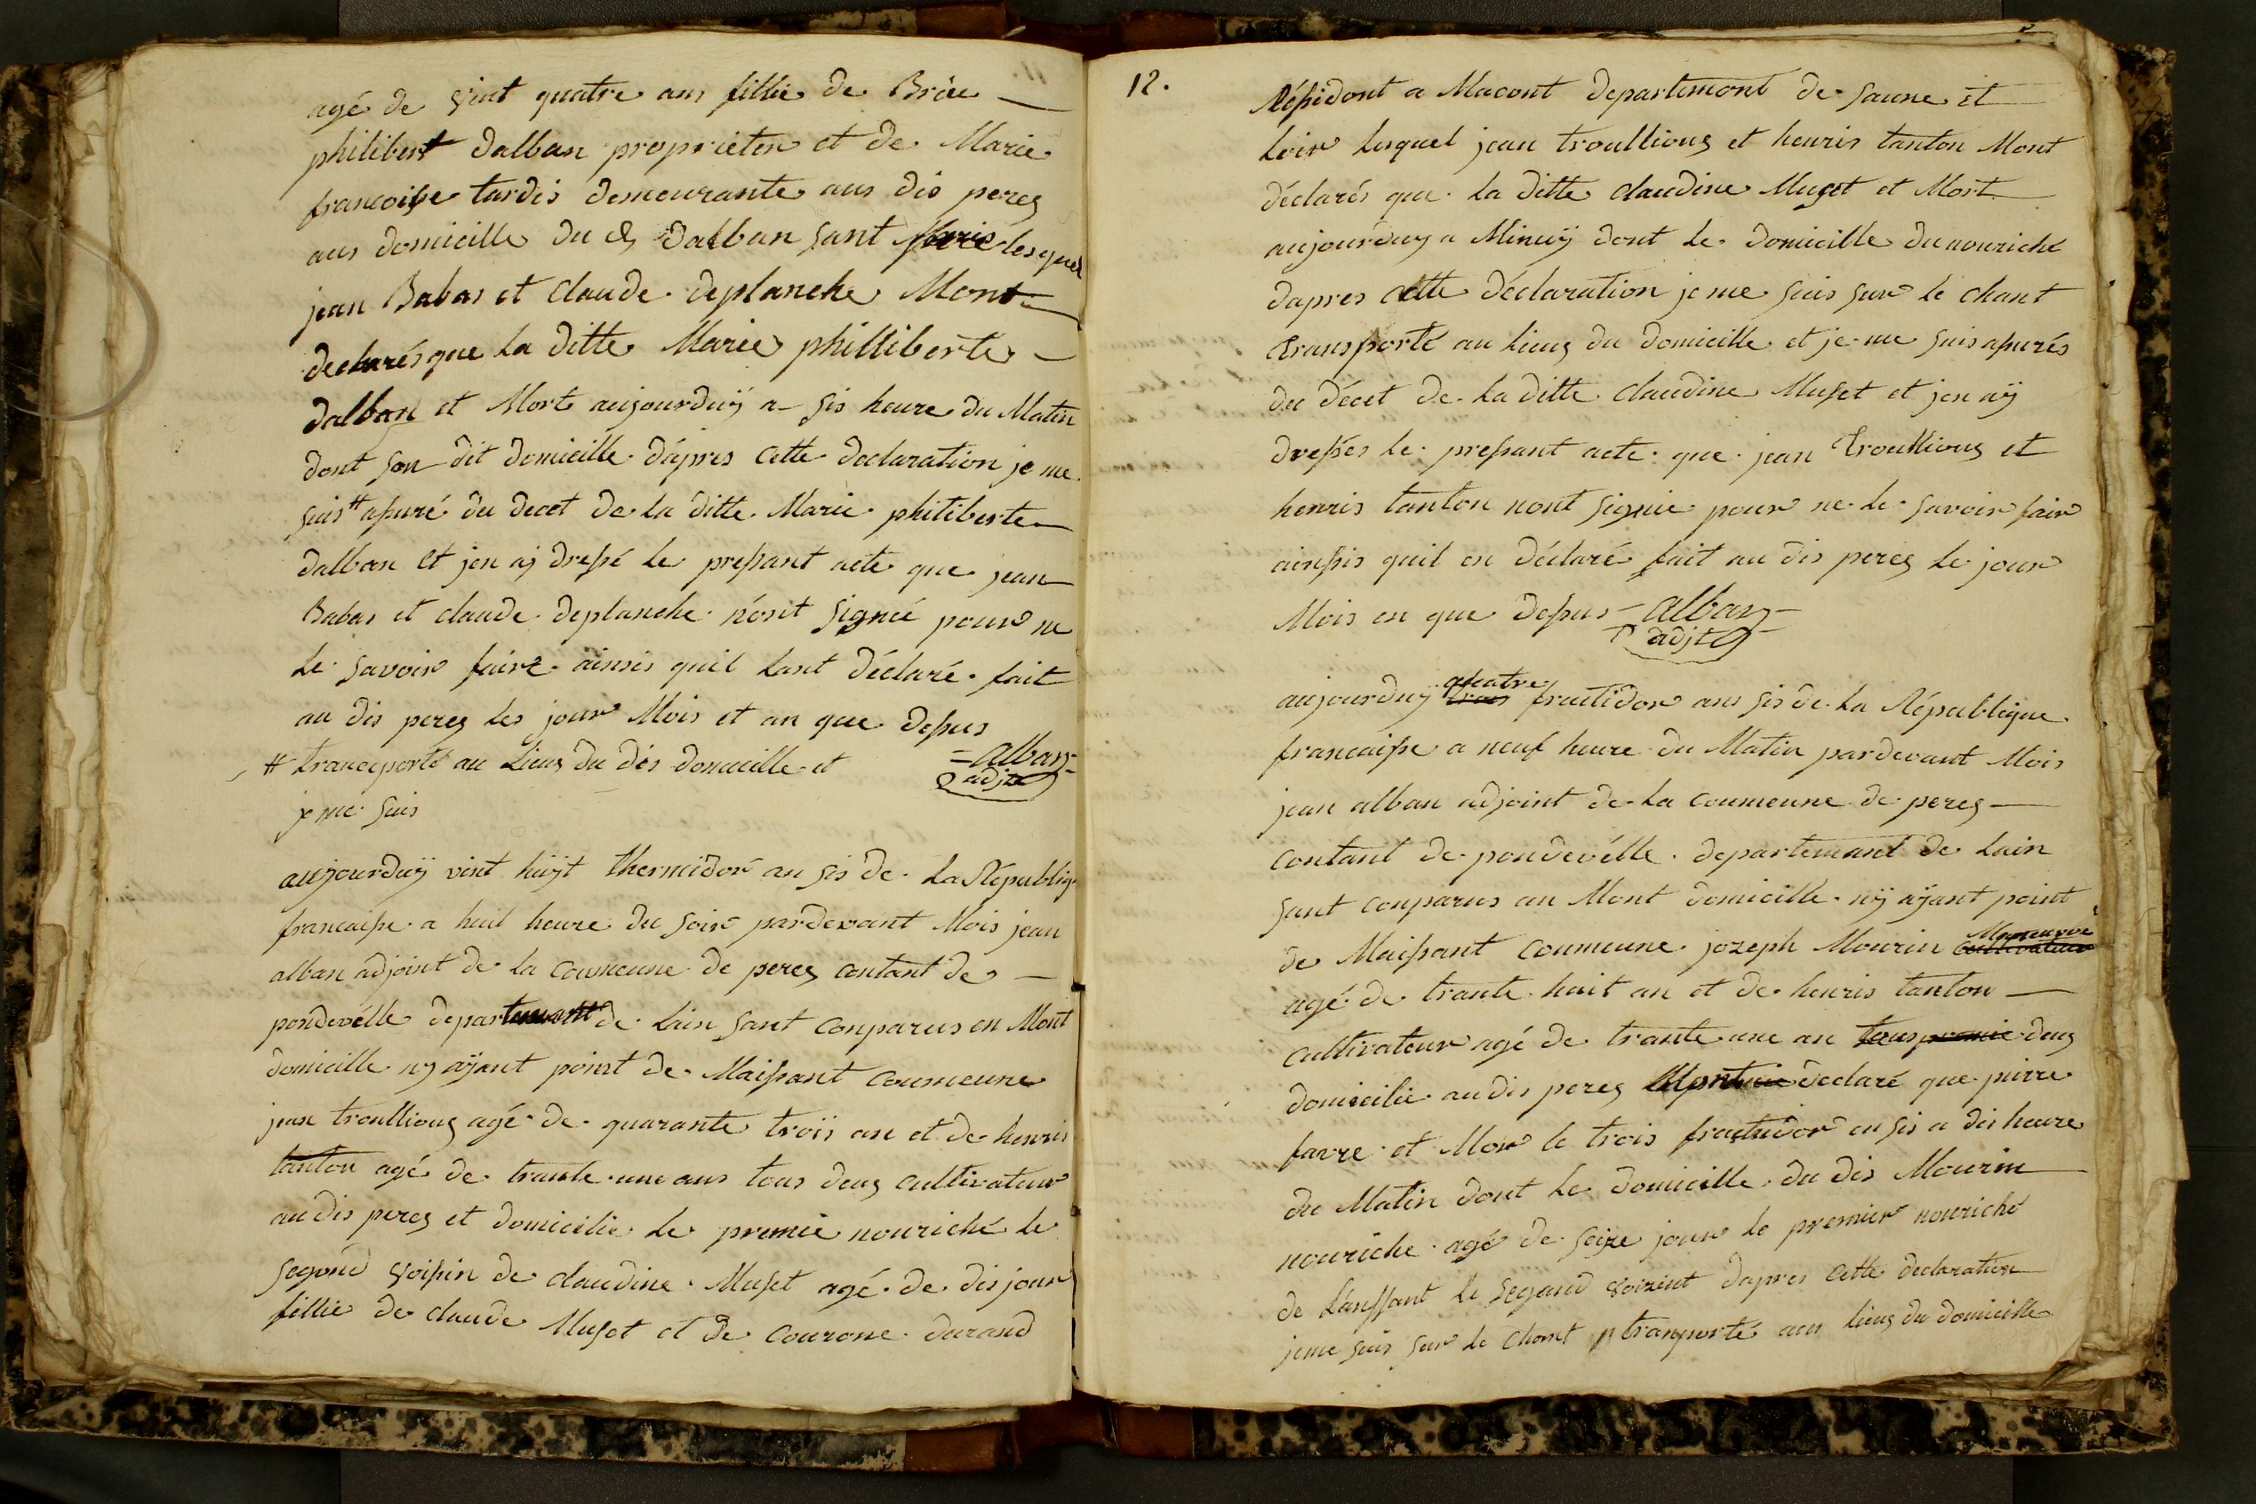 agé de vint quatre ans fillie de Brice
philibert dalban proprieter et de Marie
francoise tardis demeurante aus dis perez
aus domicille du dalban sant Maris lesquel
jean Babas et claude deplanche Mont
declarés que la ditte Marie philliberte
dalban et Morte aujourduÿ a sis heure du Matin
dont son dit domicille dapres cette declaration je me
suis # asuré du decet de la ditte Marie philiberte
dalban et jen aj dressé le pressant acte que jean
Babas et claude deplanche nont signié pour ne
le savoir faire ainsis quil lant déclaré fait
au dis perez les jour Mois et an que dessus
# transporté au Lieuz du dis domicille et
je me suis
= alban =
adjt
aujourduÿ vint huÿt thermidor an sis de la Républiq
francaisse a huil heure du soir pardevant Mois jean
alban adjoint de la coumeune de perez contant de
pondevélle departement de lain sant conparus en Mont
domicille nÿ aÿant point de Maissant coumeune
jean troulliouz agé de quarante troïs an et de henris
tanton agé de trante une ans tous deuz cultivateur
au dis perez et domicilie le premie nouriché le
segond voissin de claudine Muset agé de dis jour
fillie de claude Muset et de courone durand
12.
Résidont a Macont departemont de saune et
Loir lesquel jean troulliouz et henris tanton Mont
déclarés que la ditte claudine Muset et Mort
aujourduy a Minuÿ dont le domicille du nouriché
dapres cette déclaration je me suis sur le chant
transporté au lieuz du domicille et je me suis asurés
du décet de la ditte claudine Muset et jen aÿ
dressés le pressant acte que jean troulliouz et
henris tanton nont signie pour ne le savoir fair
ainssis quil on déclaré fait au dis perez le jour
Mois en que dessus = alban =
adjt
aujourduy trois quatre fructidor ans sis de la République
francaisse a neuf heure du Matin pardevant Mois
jean alban adjoint de la coumeune de perez
contant de pondevélle departemant de lain
sant conparus au Mont domicille nÿ aÿant point
de Maissant coumeune jozeph Mourin cultivateur Maneuvre
agé de trante huit an et de henris tanton
cultivateur agé de trante une an tous premie deuz
domicilie au dis perez Mont declaré que pierre
favre et Mor le trois fructidor en sis a dis heure
du Matin dont le domicille du dis Mourin
nouriche agé de seize jour le premier nouriché
de lanssant le segand voizint dapres cette declaration
jeme suis sur le chont transporté aus lieuz du domicille